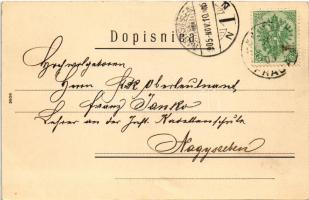 Dopisnica
Hochwolgeboren
Herrn K.u.K. Oberleutnant
Franz Janko
Lehrer an der Inft. Kadettenschule
Nagyszeben